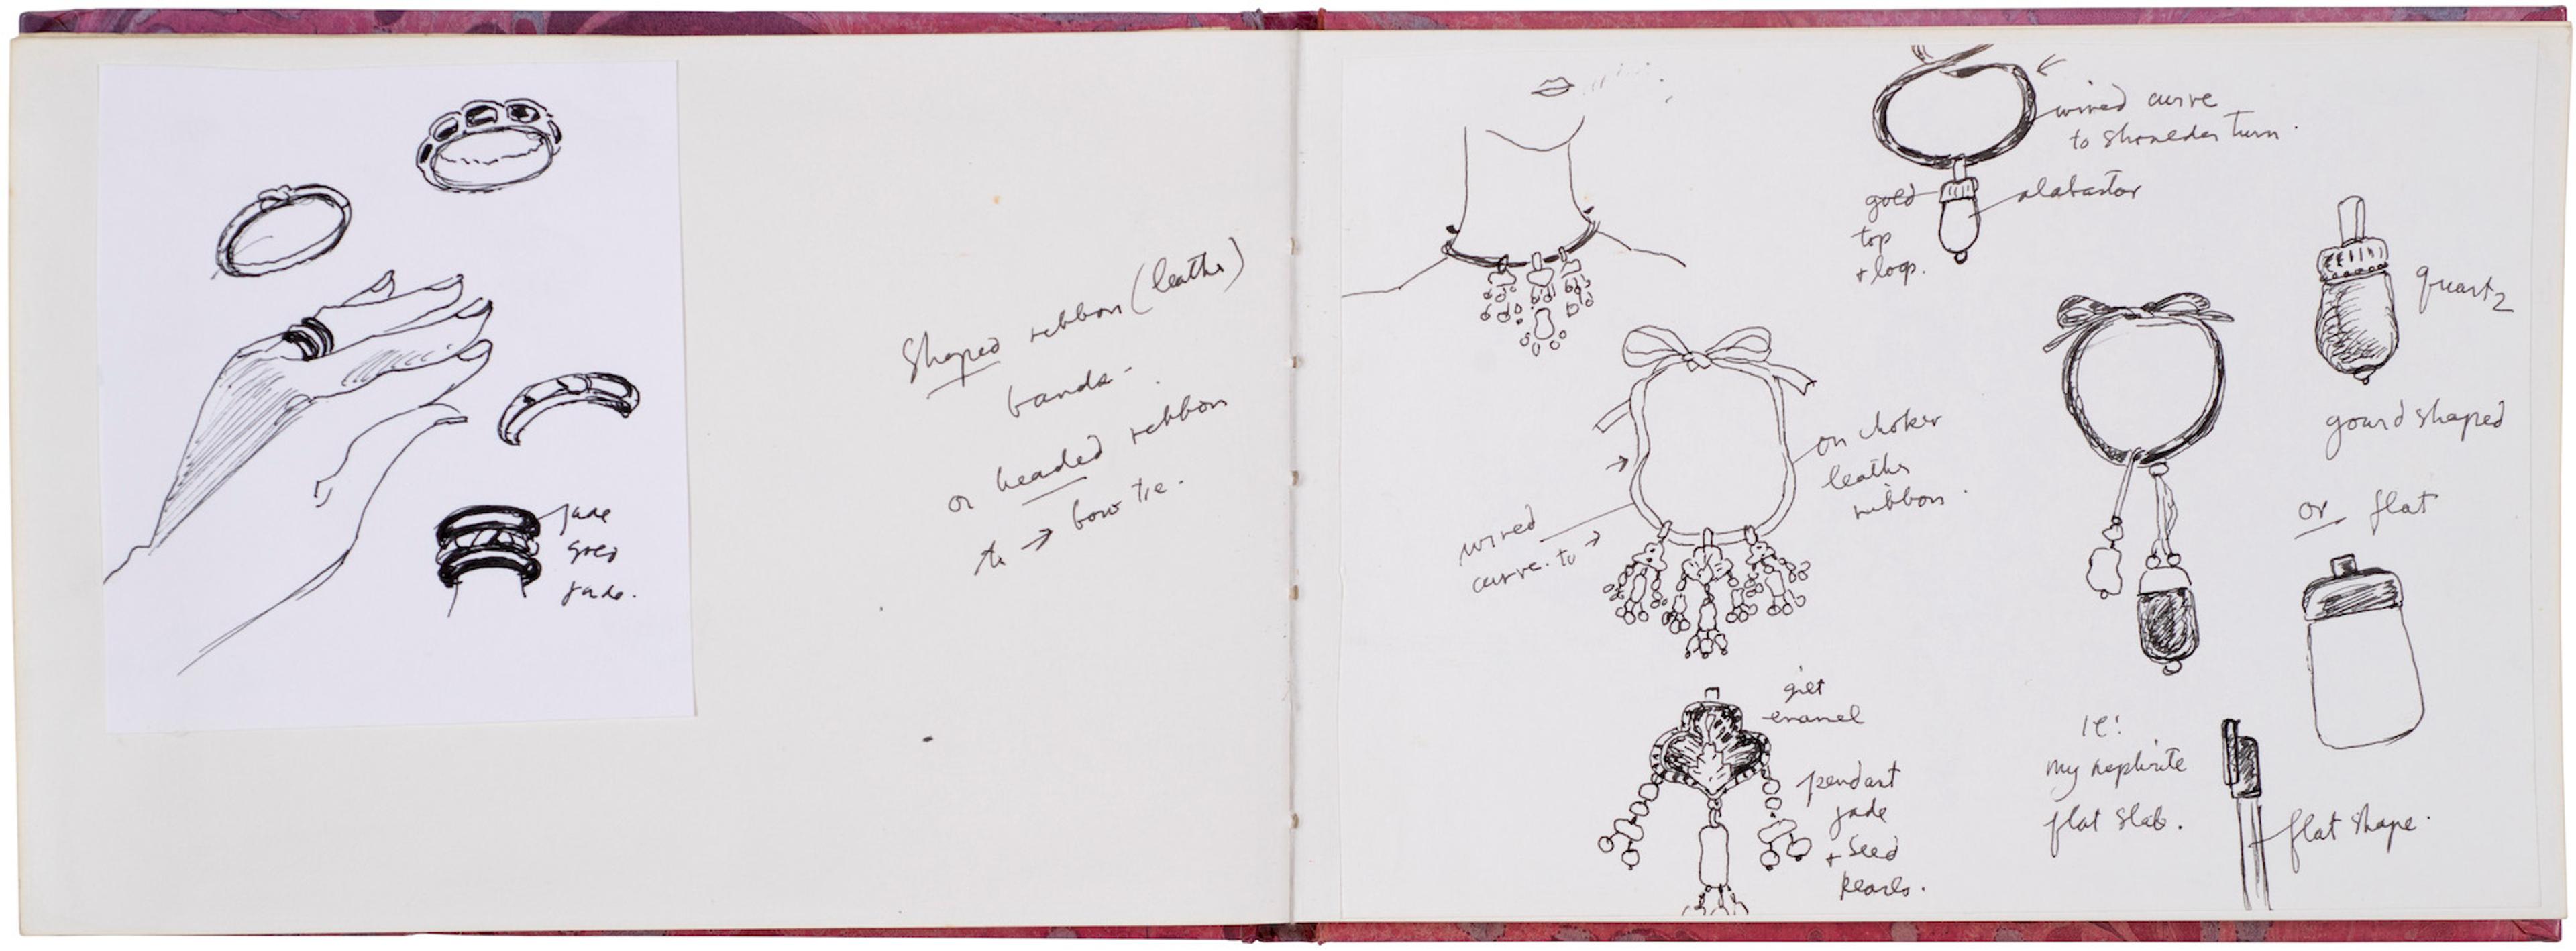 jade
gold
jade.
Shaped ribbon (leather)
bands -
or beaded ribbon
to → bow tie.
wired curve
to shoulder turn.
gold
top
+ loop.
alabastor
quartz
gourd shaped
or flat
on choker
leather
ribbon.
wired
curve. to →
gilt
enamel
pendant
jade
+ seed
pearls.
ie:
my nephrite
flat slab.
flat shape.